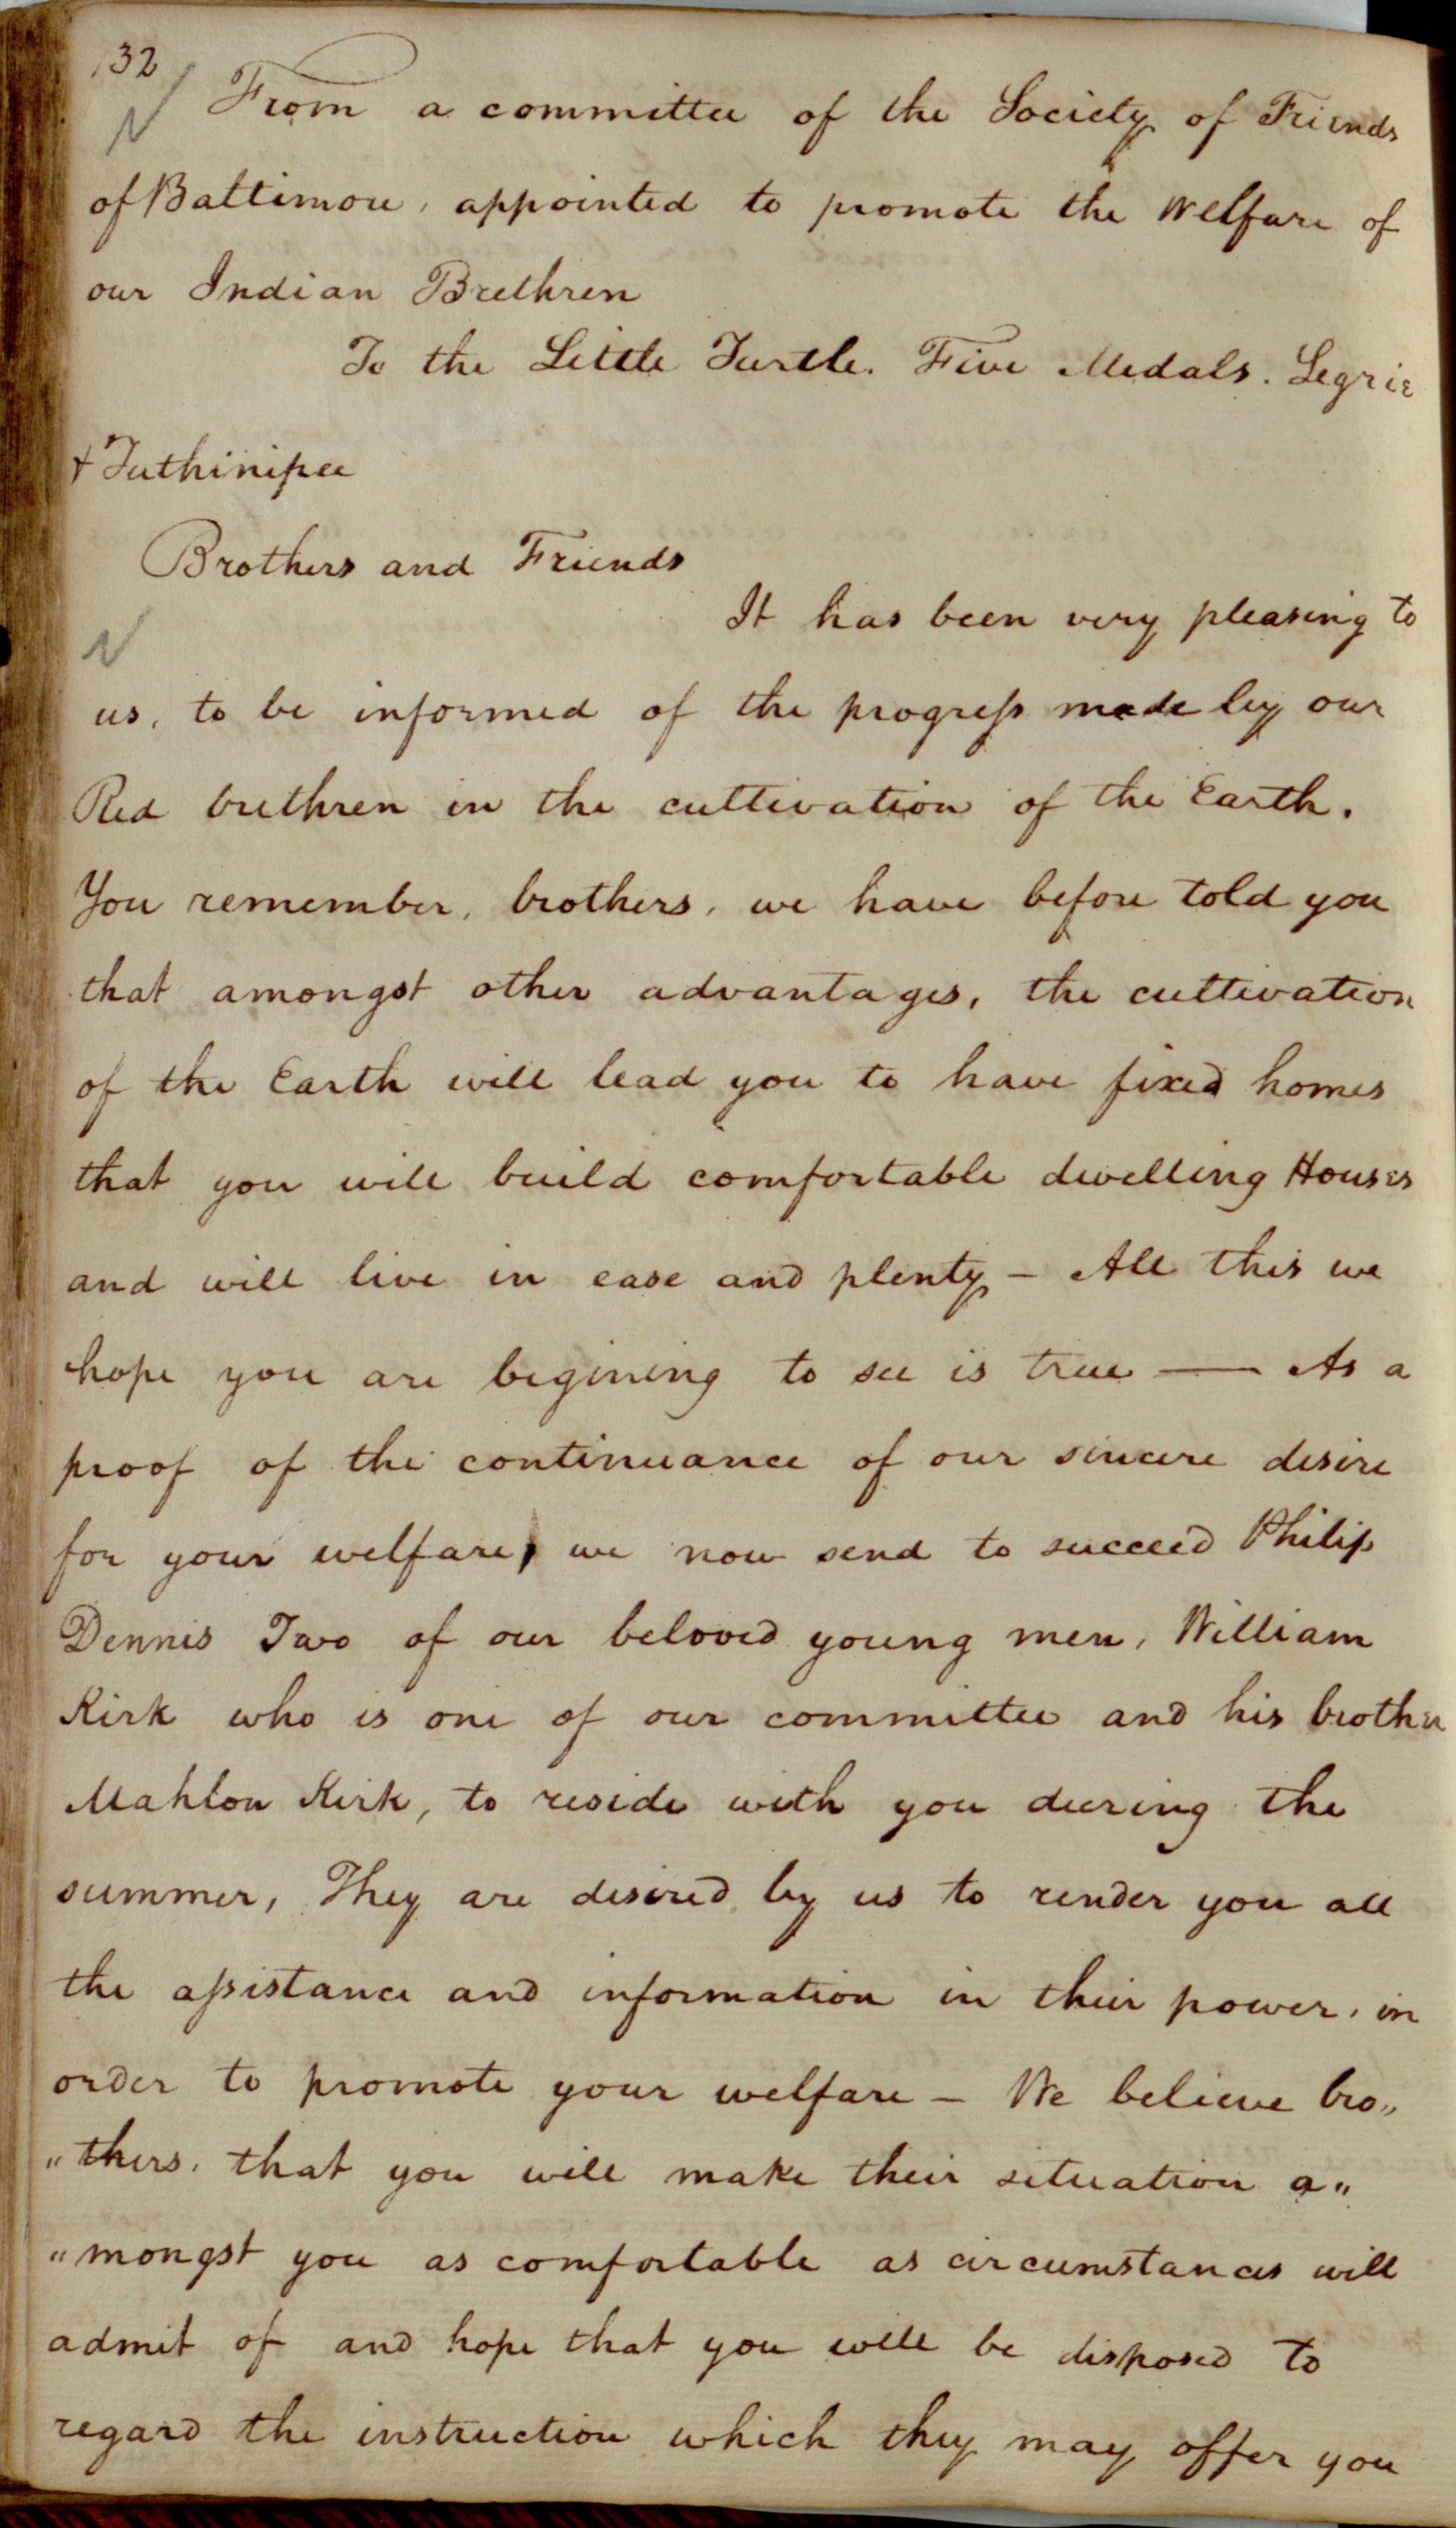 132
From a committee of the Society of Friends
of Baltimore, appointed to promote the Welfare of
our Indian Brethren
To the Little Turtle. Five Medals. Legris
& Tuthinipee
Brothers and Friends
It has been very pleasing to
us, to be informed of the progress made by our
Red brethren in the cultivation of the Earth.
You remember, brothers, we have before told you
that amongst other advantages, the cultivation
of the Earth will lead you to have fixed homes
that you will build comfortable dwelling Houses
and will live in ease and plenty - All this we
hope you are begining to see is true — As a
proof of the continuance of our sincere desire
for your welfare, we now send to succeed Philip
Dennis Two of our beloved young men, William
Kirk who is one of our committee and his brother
Mahlon Kirk, to reside with you during the
summer, They are desired by us to render you all
the assistance and information in their power, in
order to promote your welfare - We believe bro„
„thers, that you will make their situation a„
„mongst you as comfortable as circumstances will
admit of and hope that you will be disposed to
regard the instruction which they may offer you